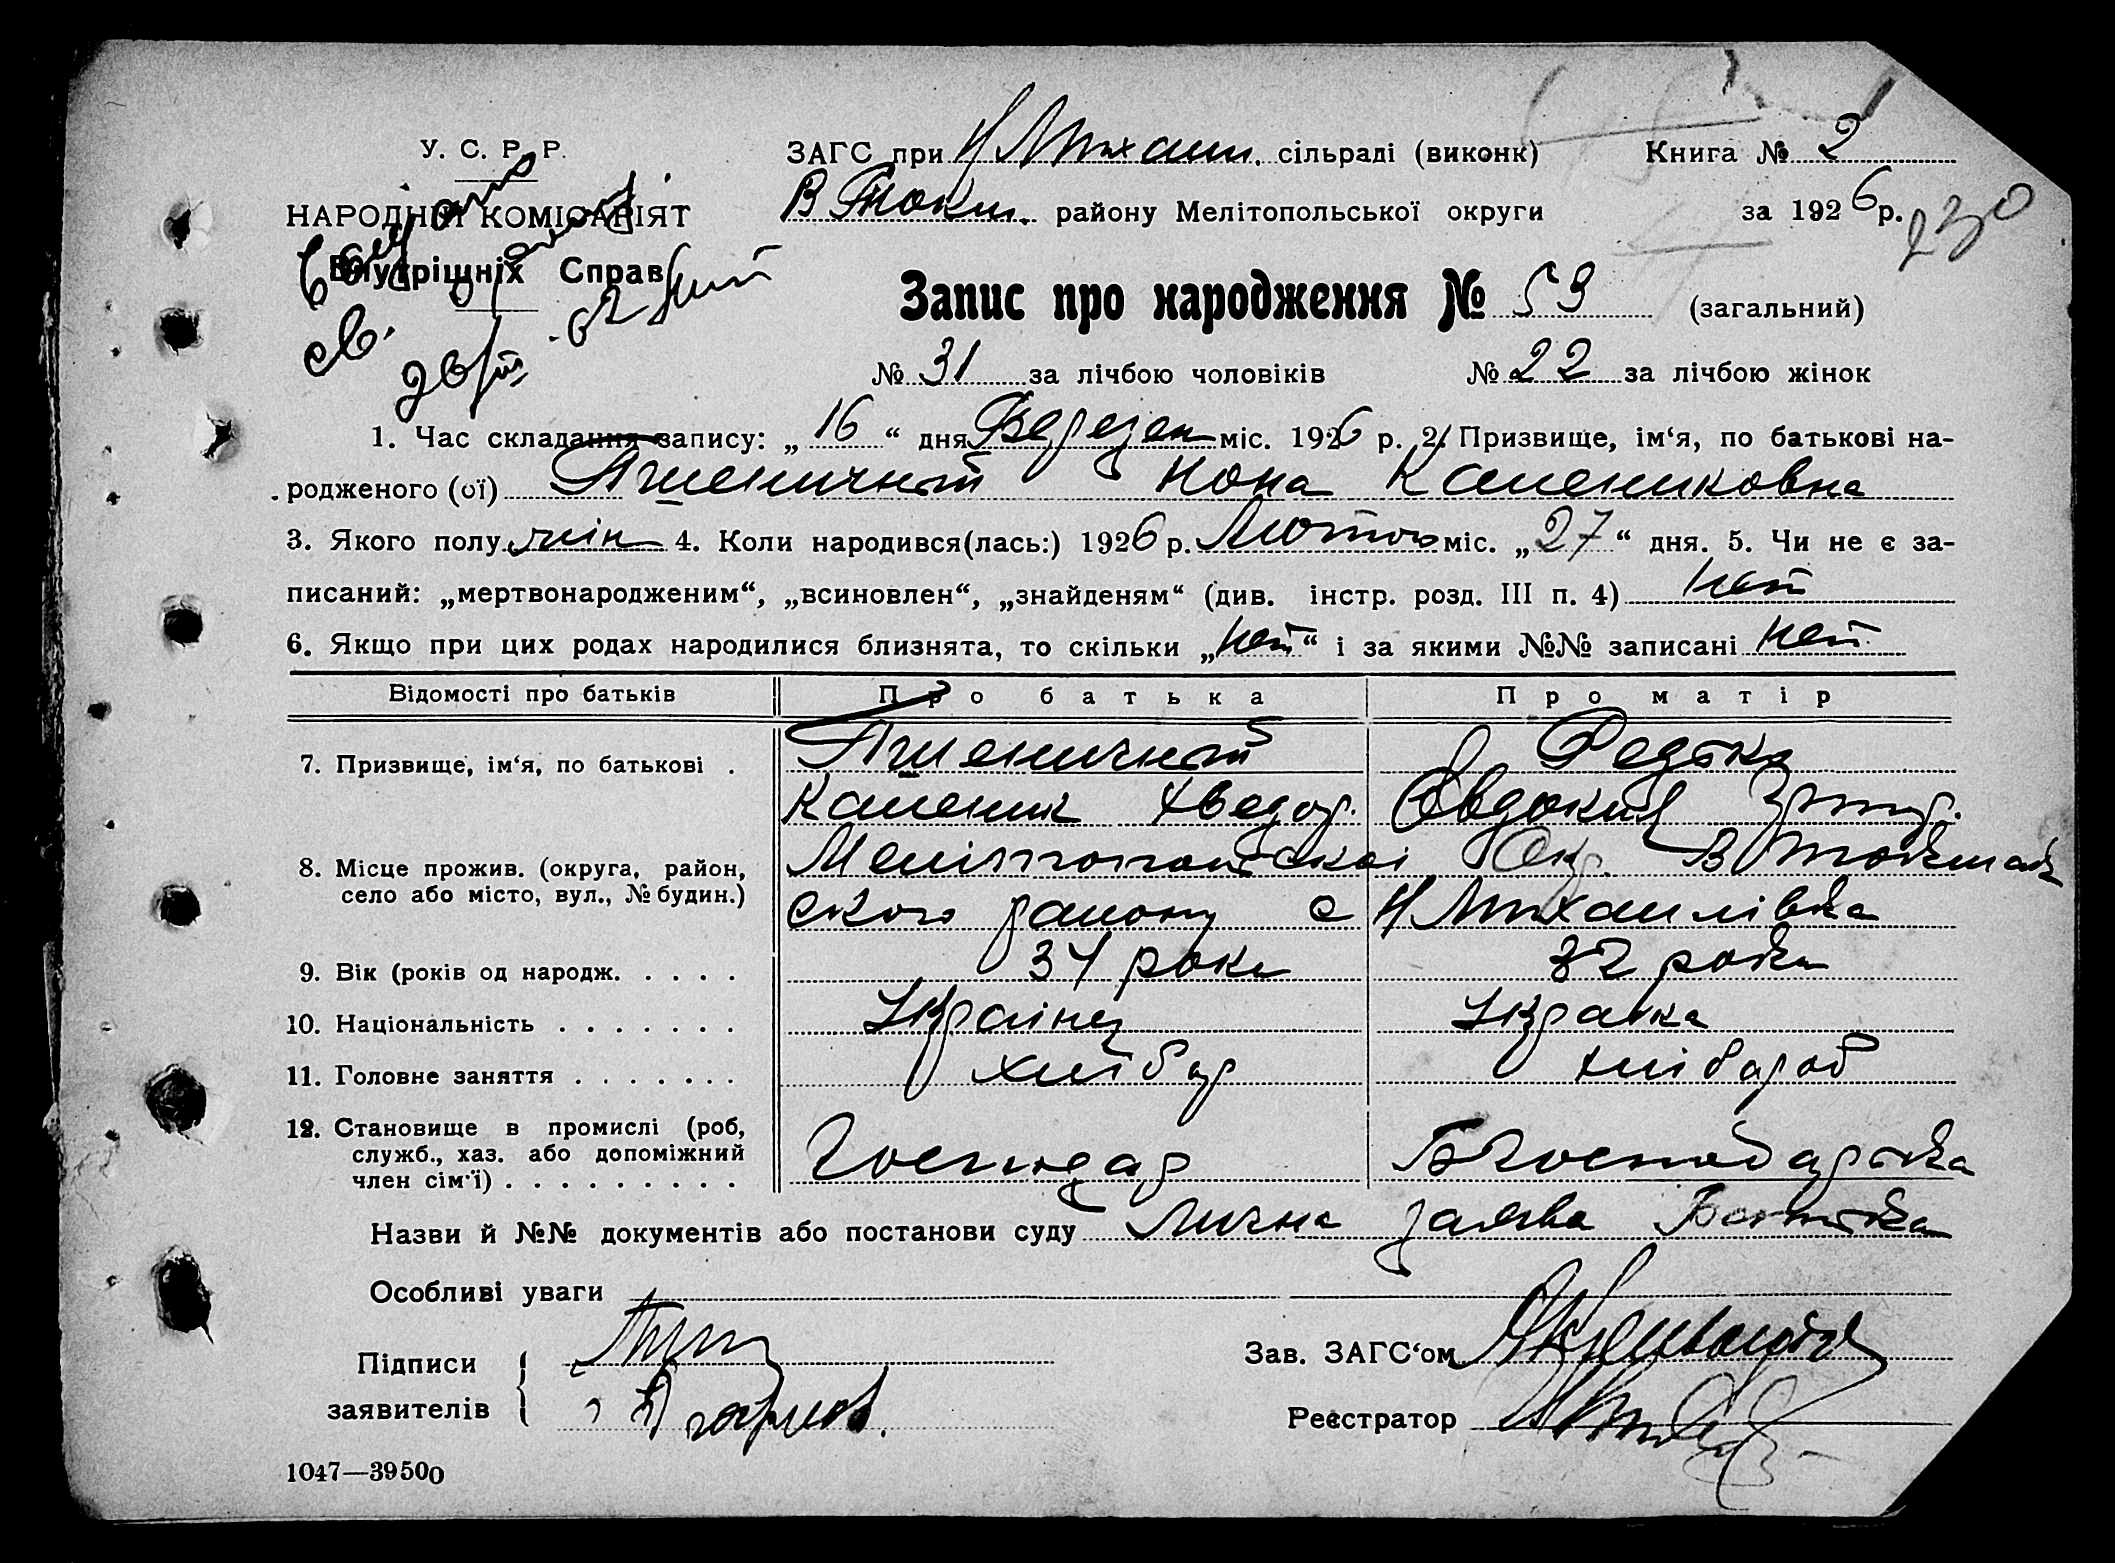 У. С. Р. Р.
НАРОДНІЙ КОМІСАРІЯТ
Внутрішніх Справ
ЗАГС при Н Михайл. сільраді (виконк)
Книга № 2
В Токм. району Мелітопольської округи
за 1926 р.
230
Запис про народження № 53 (загальний)
№ 31 за лічбою чоловіків № 22 за лічбою жінок
1. Час складання запису: „ 16 “ дня Березен міс. 1926 р. 2. Призвище, ім‘я, по батькові на-
родженого (ої) Пшеничный Нона Каленик​овна
3. Якого полу жін 4. Коли народився(лась:) 1926 р. Лютого міс. „ 27 “ дня. 5. Чи не є за-
писаний: „мертвонародженим“, „всиновлен“, „знайденям“ (див. інстр. розд. III п. 4) нет
6. Якщо при цих родах народилися близнята, то скільки „ нет “ і за якими №№ записані нет
Відомості про батьків Про батька Про матір
7. Призвище, ім‘я, по батькові . Пшеничный Редька
Каленик Хведор. Овдокия Григ.
8. Місце прожив. (округа, район, Мелітопольскоі Окр. В Токмаць
село або місто, вул., № будин.) ского району с Н Михайлівка
9. Вік (років од народж. . . . . 34 роки 32 роки
10. Національність . . . . . . . Українец Украінка
11. Головне заняття . . . . . . . хлібор хлібороб
12. Становище в промислі (роб, Господар Господарька
служб., хаз. або допоміжний
член сім‘ї) . . . . . . . . .
Назви й №№ документів або постанови суду Лична заява Батька
Особливі уваги
Підписи
заявителів
Зав. ЗАГС‘ом
Реєстратор
1047—39500